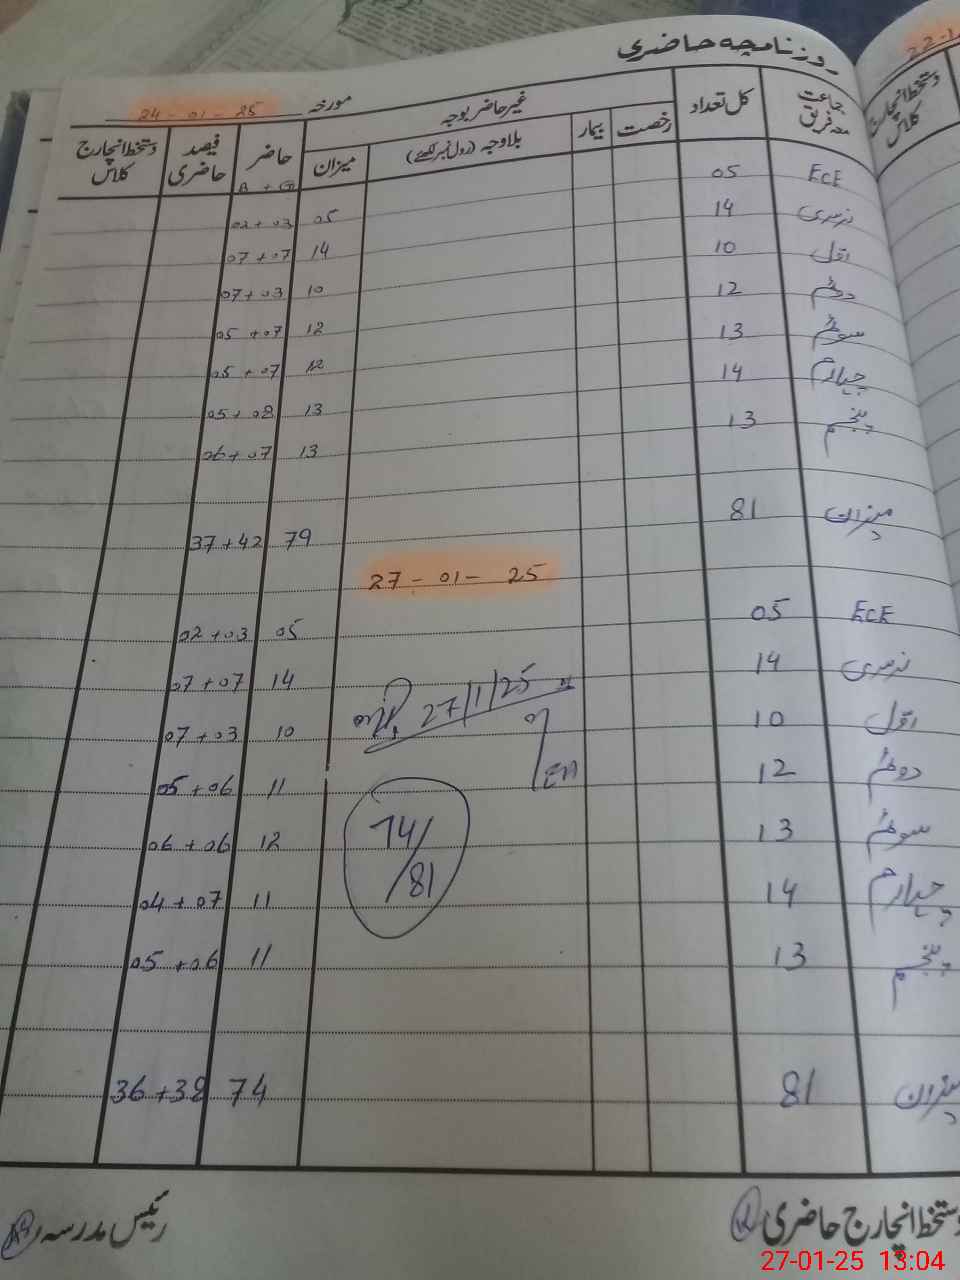 روزنامچہ حاضری
مورخہ 24-01-25
جماعت معہ فریق کل تعداد غیر حاضر بوجہ حاضر فیصد حاضری دستخط انچارج کلاس
رخصت بیمار بلاوجہ (رول نمبر لکھئے) میزان B + G
ECE 05 05 02+03
نرسری 14 14 07+07
اول 10 10 07+03
دوئم 12 12 05+07
سوئم 13 12 05+07
چہارم 14 13 05+08
پنجم 13 13 06+07
میزان 81 79 37+42
27-01-25
ECE 05 05 02+03
نرسری 14 14 07+07
27/1/25
اول 10 10 07+03
دوئم 12 11 05+06
سوئم 13 12 06+06
74/81
چہارم 14 11 04+07
پنجم 13 11 05+06
میزان 81 74 36+38
دستخط انچارج حاضری
رئیس مدرسہ
دستخط انچارج کلاس
27-01-25 13:04